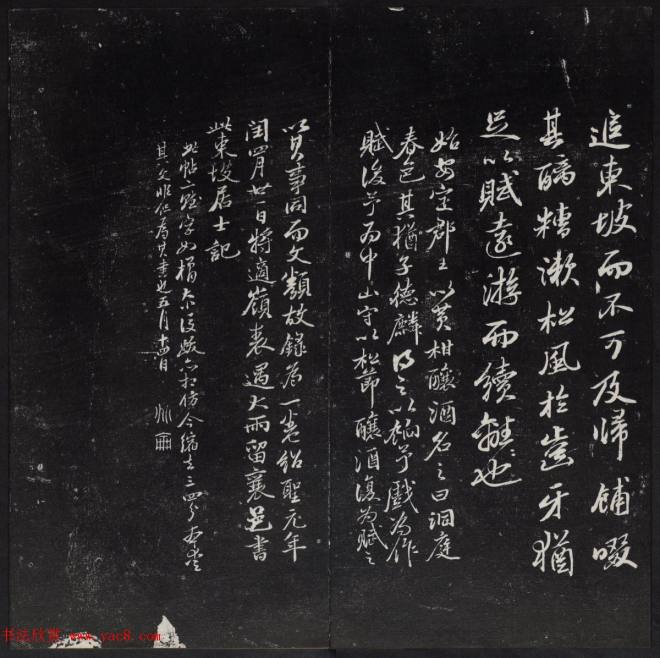 追東坡而不可及歸餔啜
其醨糟漱松風於齒牙猶
足以賦遠游而續離騷也
始安定郡王以黃柑釀酒名之曰洞庭
春色其猶子德麟得之以餉予戲為作
賦後予為中山守以松節釀酒復為賦之
以其事同而文類故錄為一卷紹聖元年
閏四月廿一日將適嶺表遇大雨留襄邑書
此東坡居士記
此帖二賦字如
今縮之三
五月
书法欣赏 www.yac8.com